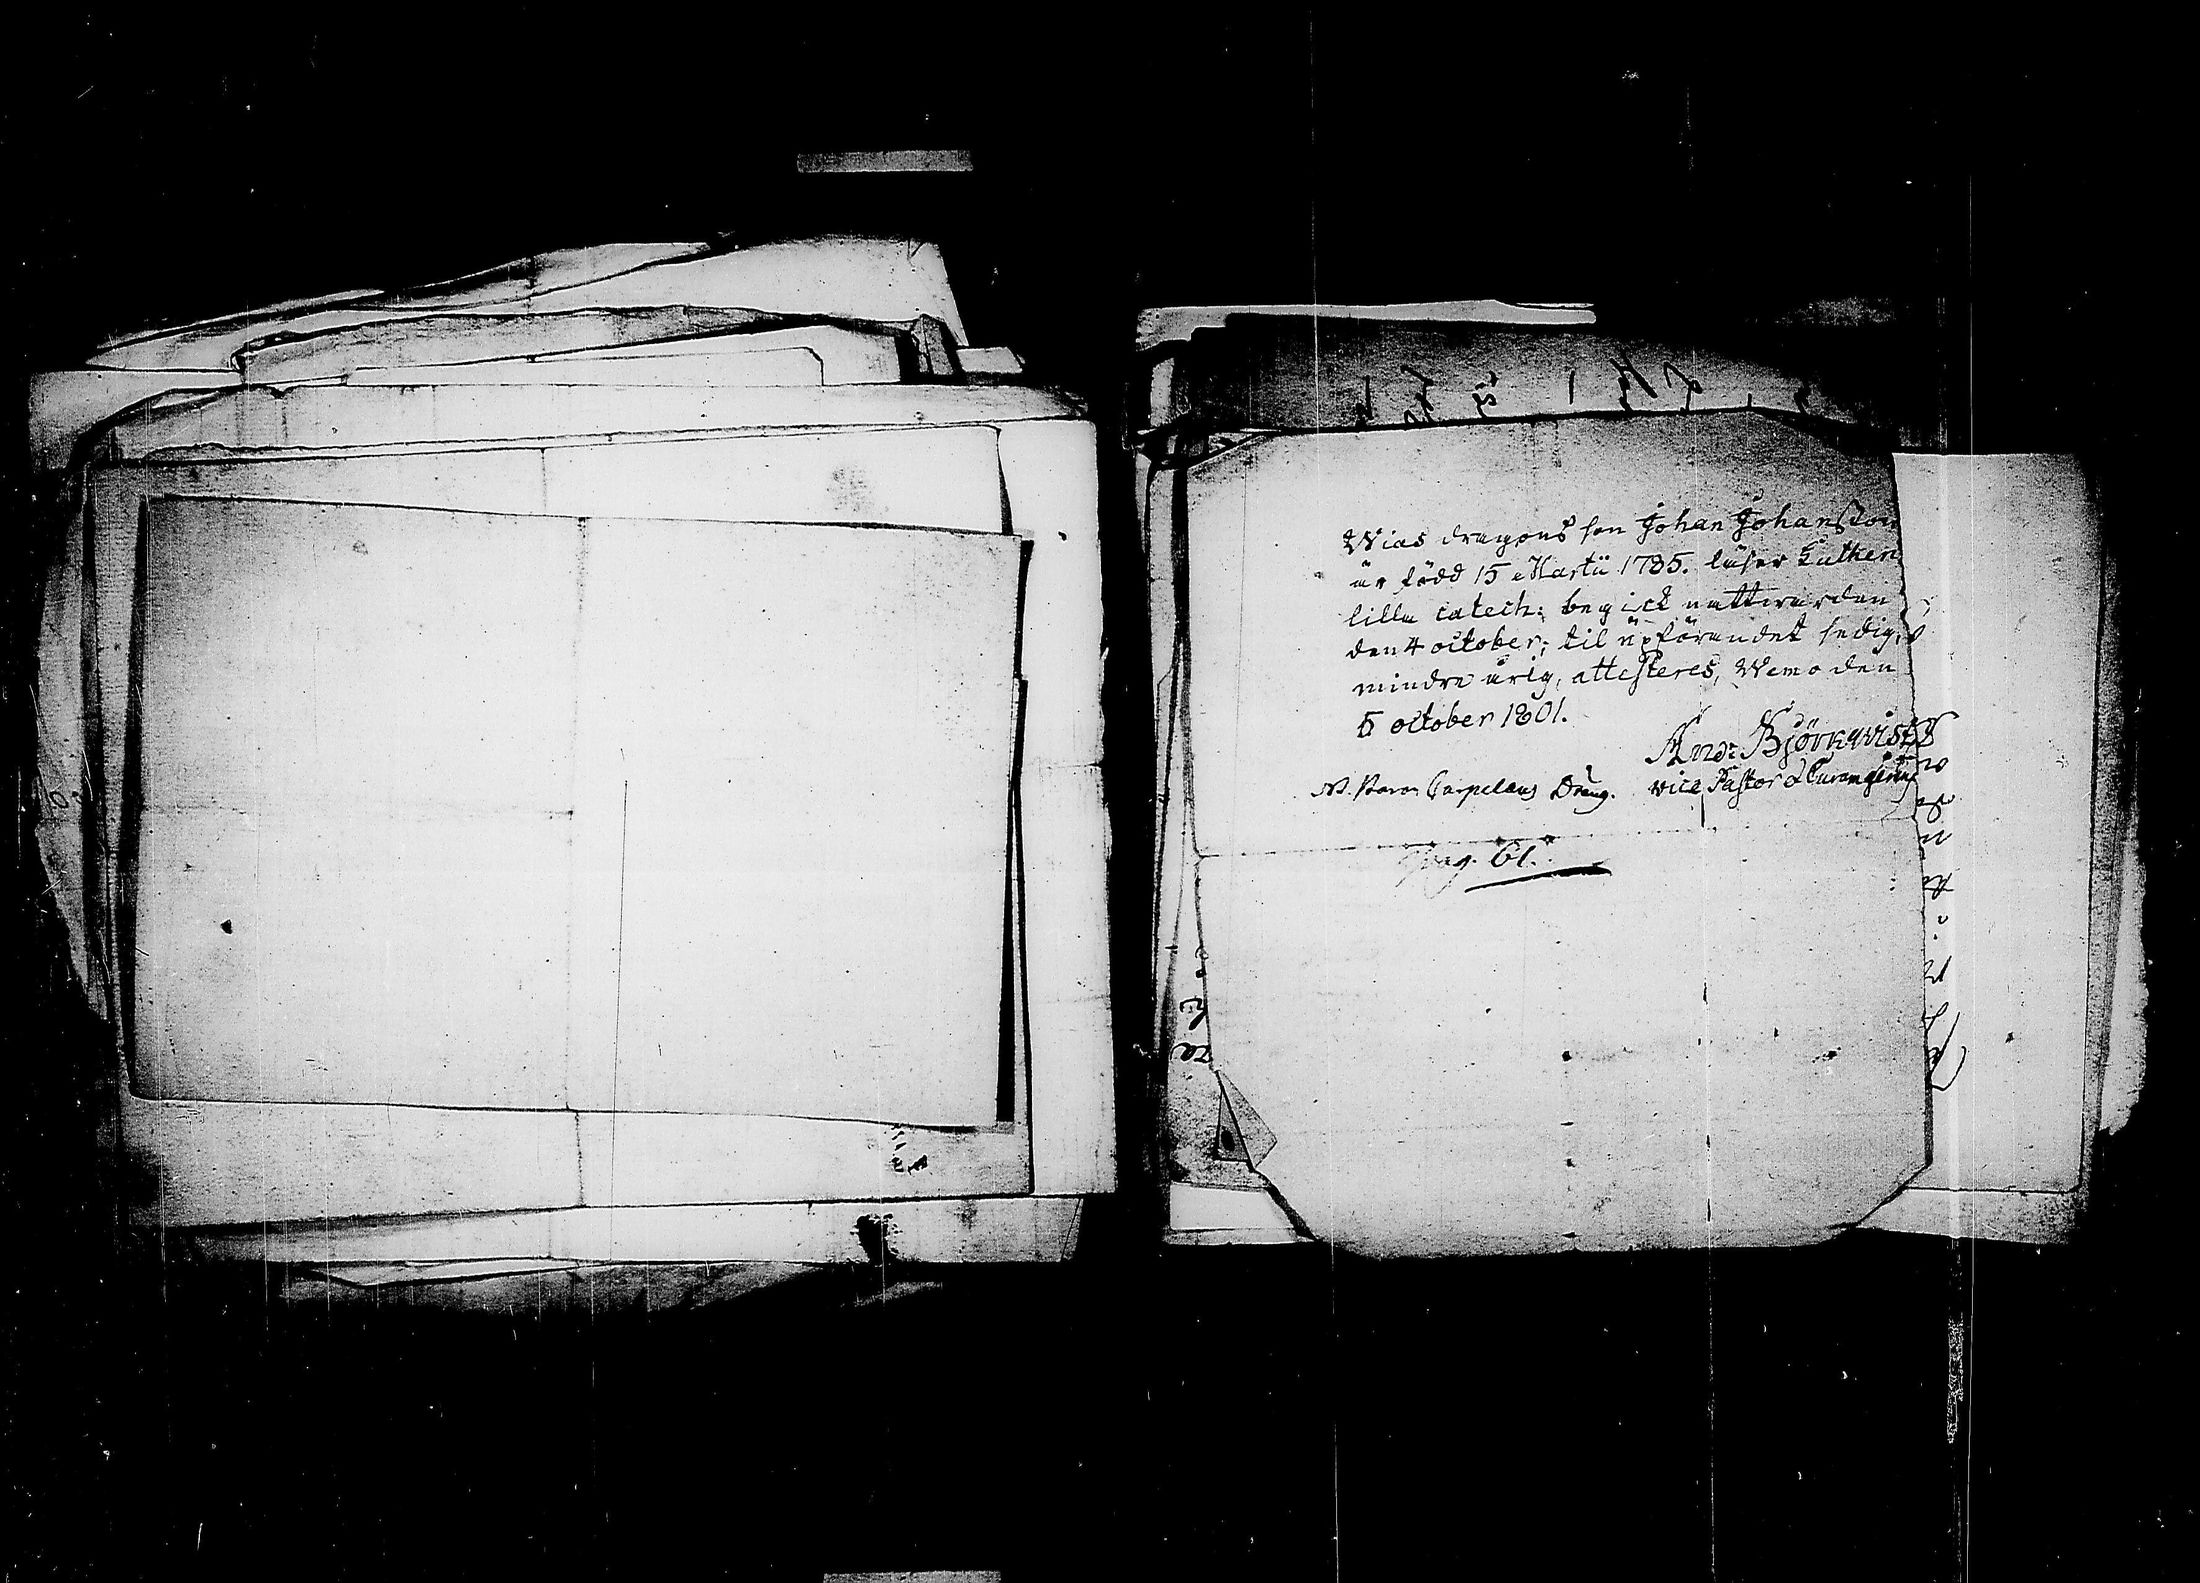 Wias dragons son Johan Johansson
är född 15 Martii 1785. läser Luthen
lilla catech: begick nattwarden
den 4 october; til upförandet sedig,
mindre årig, attesteres, Wemo den
5 october 1801.
And: Björkqvist
vice Pastor
Baron Carpelans Dräng.
pag. 61.